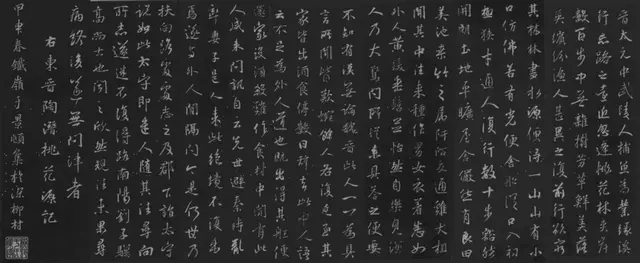 晉太元中武陵人捕魚為業緣溪
行忘路之遠近忽逢桃花林夾岸
數百步中無雜樹芳草鮮美落
英繽紛漁人甚異之復前行欲窮
其林林盡水源便得一山山有小
口仿佛若有光便舍船從口入初
極狹才通人復行數十步豁然
開朗土地平曠屋舍儼然有良田
美池桑竹之屬阡陌交通雞犬相
聞其中往來種作男女衣著悉如
外人黃髮垂髫並怡然自樂見漁
人乃大驚問所從來具答之便要
不知有漢無論魏晉此人一一為具
言所聞皆歎惋餘人各復延至其
家皆出酒食停數日辭去此中人語
云不足為外人道也既出得其船便
還家設酒殺雞作食村中聞有此
人咸來問訊自云先世避秦時亂
率妻子邑人來此絕境不復出
焉遂與外人間隔問今是何世乃
扶向路處處志之及郡下詣太守
說如此太守即遣人隨其往尋向
所志遂迷不復得路南陽劉子驥
高尚士也聞之欣然規往未果尋
病終後遂無問津者
右東晉陶潛桃花源記
甲申春鐵嶺于景頫集於深柳村